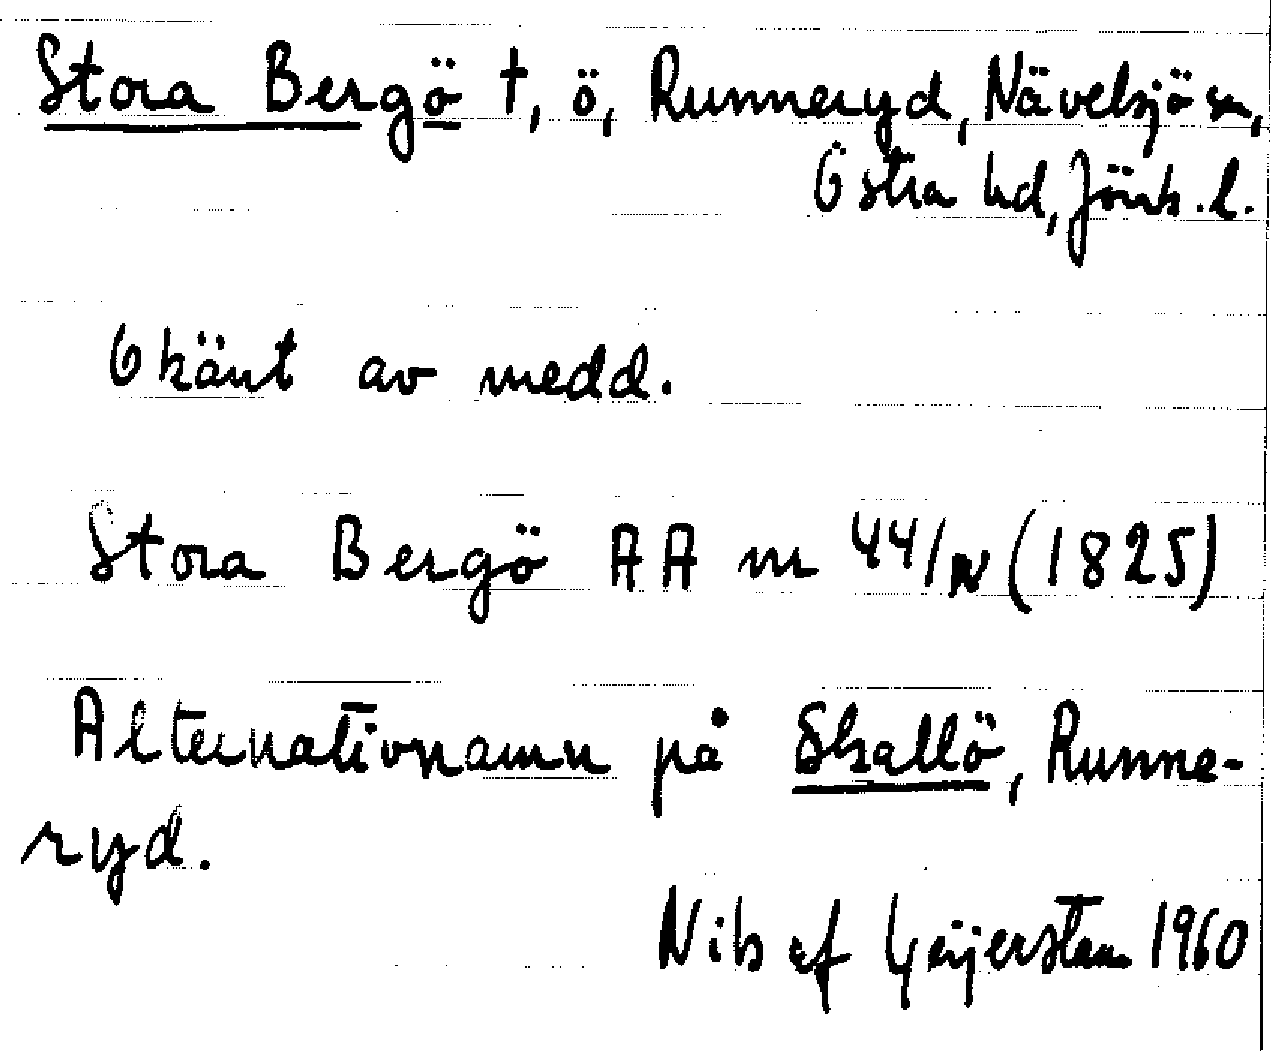 Stora Bergö †, ö, Runneryd, Nävelsjö sn,
Östra hd, Jönk. l.
Okänt av medd.
Stora Bergö AA m 44/N (1825)
Alternativnamn på Skallö, Runne-
ryd.
Nils af Geijerstam 1960